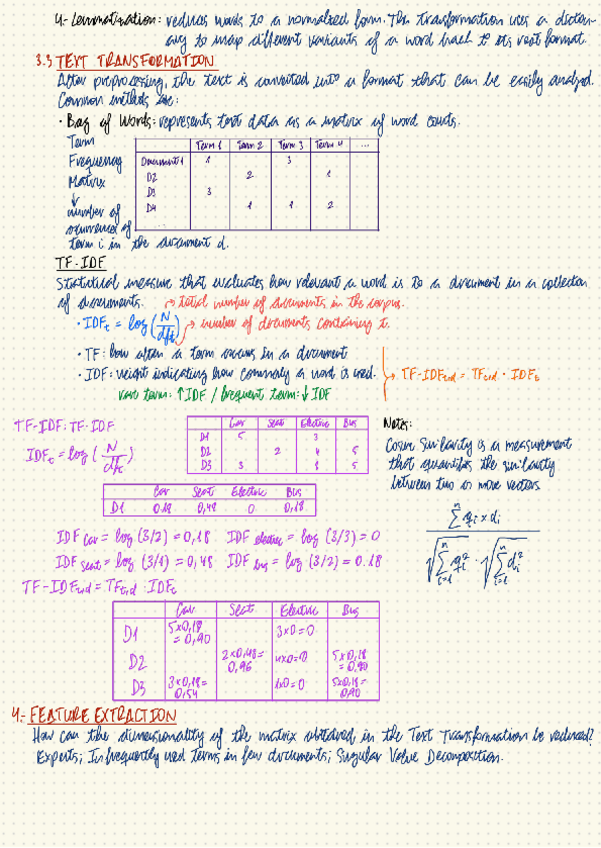 4.- Lemmatization: reduces words to a normalized form. This transformation uses a diction-
ary to map different variants of a word back to its root format.
3.3 TEXT TRANSFORMATION
After preprocessing, the text is converted into a format that can be easily analyzed.
Common methods are:
· Bag of Words: represents text data as a matrix of word counts.
Term Frequency Matrix
↓
number of ocurrences of term i in the document d.
Term 1 Term 2 Term 3 Term 4 ...
Document 1 1 3
D2 2 1
D3 3
D4 1 1 2
TF-IDF
Statistical measure that evaluates how relevant a word is to a document in a collection
of documents.
→ total number of documents in the corpus.
· IDFt = log (N/dft) → number of documents containing t.
· TF: how often a term occurs in a document
· IDF: weight indicating how commonly a word is used.
→ TF-IDFt,d = TFt,d · IDFt
rare term: ↑IDF / frequent term: ↓IDF
TF-IDF: TF·IDF
IDFt = log (N/dft)
Car Seat Electric Bus
D1 5 3
D2 2 4 5
D3 3 1 5
Car Seat Electric Bus
D1 0.18 0,48 0 0,18
Notes:
Cosine Similarity is a measurement
that quantifies the similarity
between two or more vectors
∑ qi x di
√∑ qi² · √∑ di²
IDF car = log (3/2) = 0,18 IDF electric = log (3/3) = 0
IDF seat = log (3/1) = 0,48 IDF bus = log (3/2) = 0.18
TF-IDFt,d = TFt,d · IDFt
Car Seat Electric Bus
D1 5x0,18 = 0,90 3x0=0
D2 2x0,48= 0,96 4x0=0 5x0,18 = 0,90
D3 3x0,18= 0,54 1x0=0 5x0,18= 0,90
4.- FEATURE EXTRACTION
How can the dimensionality of the matrix obtained in the Text Transformation be reduced?
Experts; Infrequently used terms in few documents; Singular Value Decomposition.